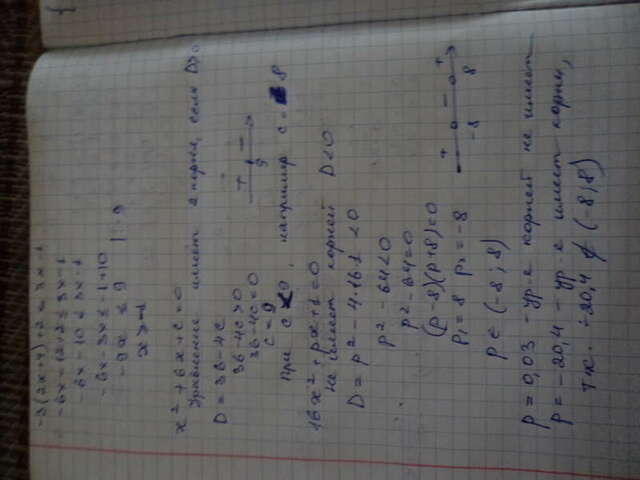 -3(2x+4)+2 ≤ 3x-1
-6x-12+2 ≤ 3x-1
-6x-10 ≤ 3x-1
-6x-3x ≤ -1+10
-9x ≤ 9 |:-9
x ≥ -1
x² + 6x + c = 0
Уравнение имеет 2 корня, если D>0
D = 36 - 4c
36-4c>0
36-4c=0
c = 9
+ -
9
при c<9, например c = 8
16x² + px + 1 = 0
не имеет корней D<0
D = p² - 4·16·1 < 0
p² - 64 < 0
p² - 64 = 0
(p-8)(p+8)=0
p₁ = 8 p₂ = -8
+ - +
-8 8
p ∈ (-8; 8)
p = 0,03 - ур-е корней не имеет
p = -20,4 - ур-е имеет корни,
т.к. -20,4 ∉ (-8; 8)